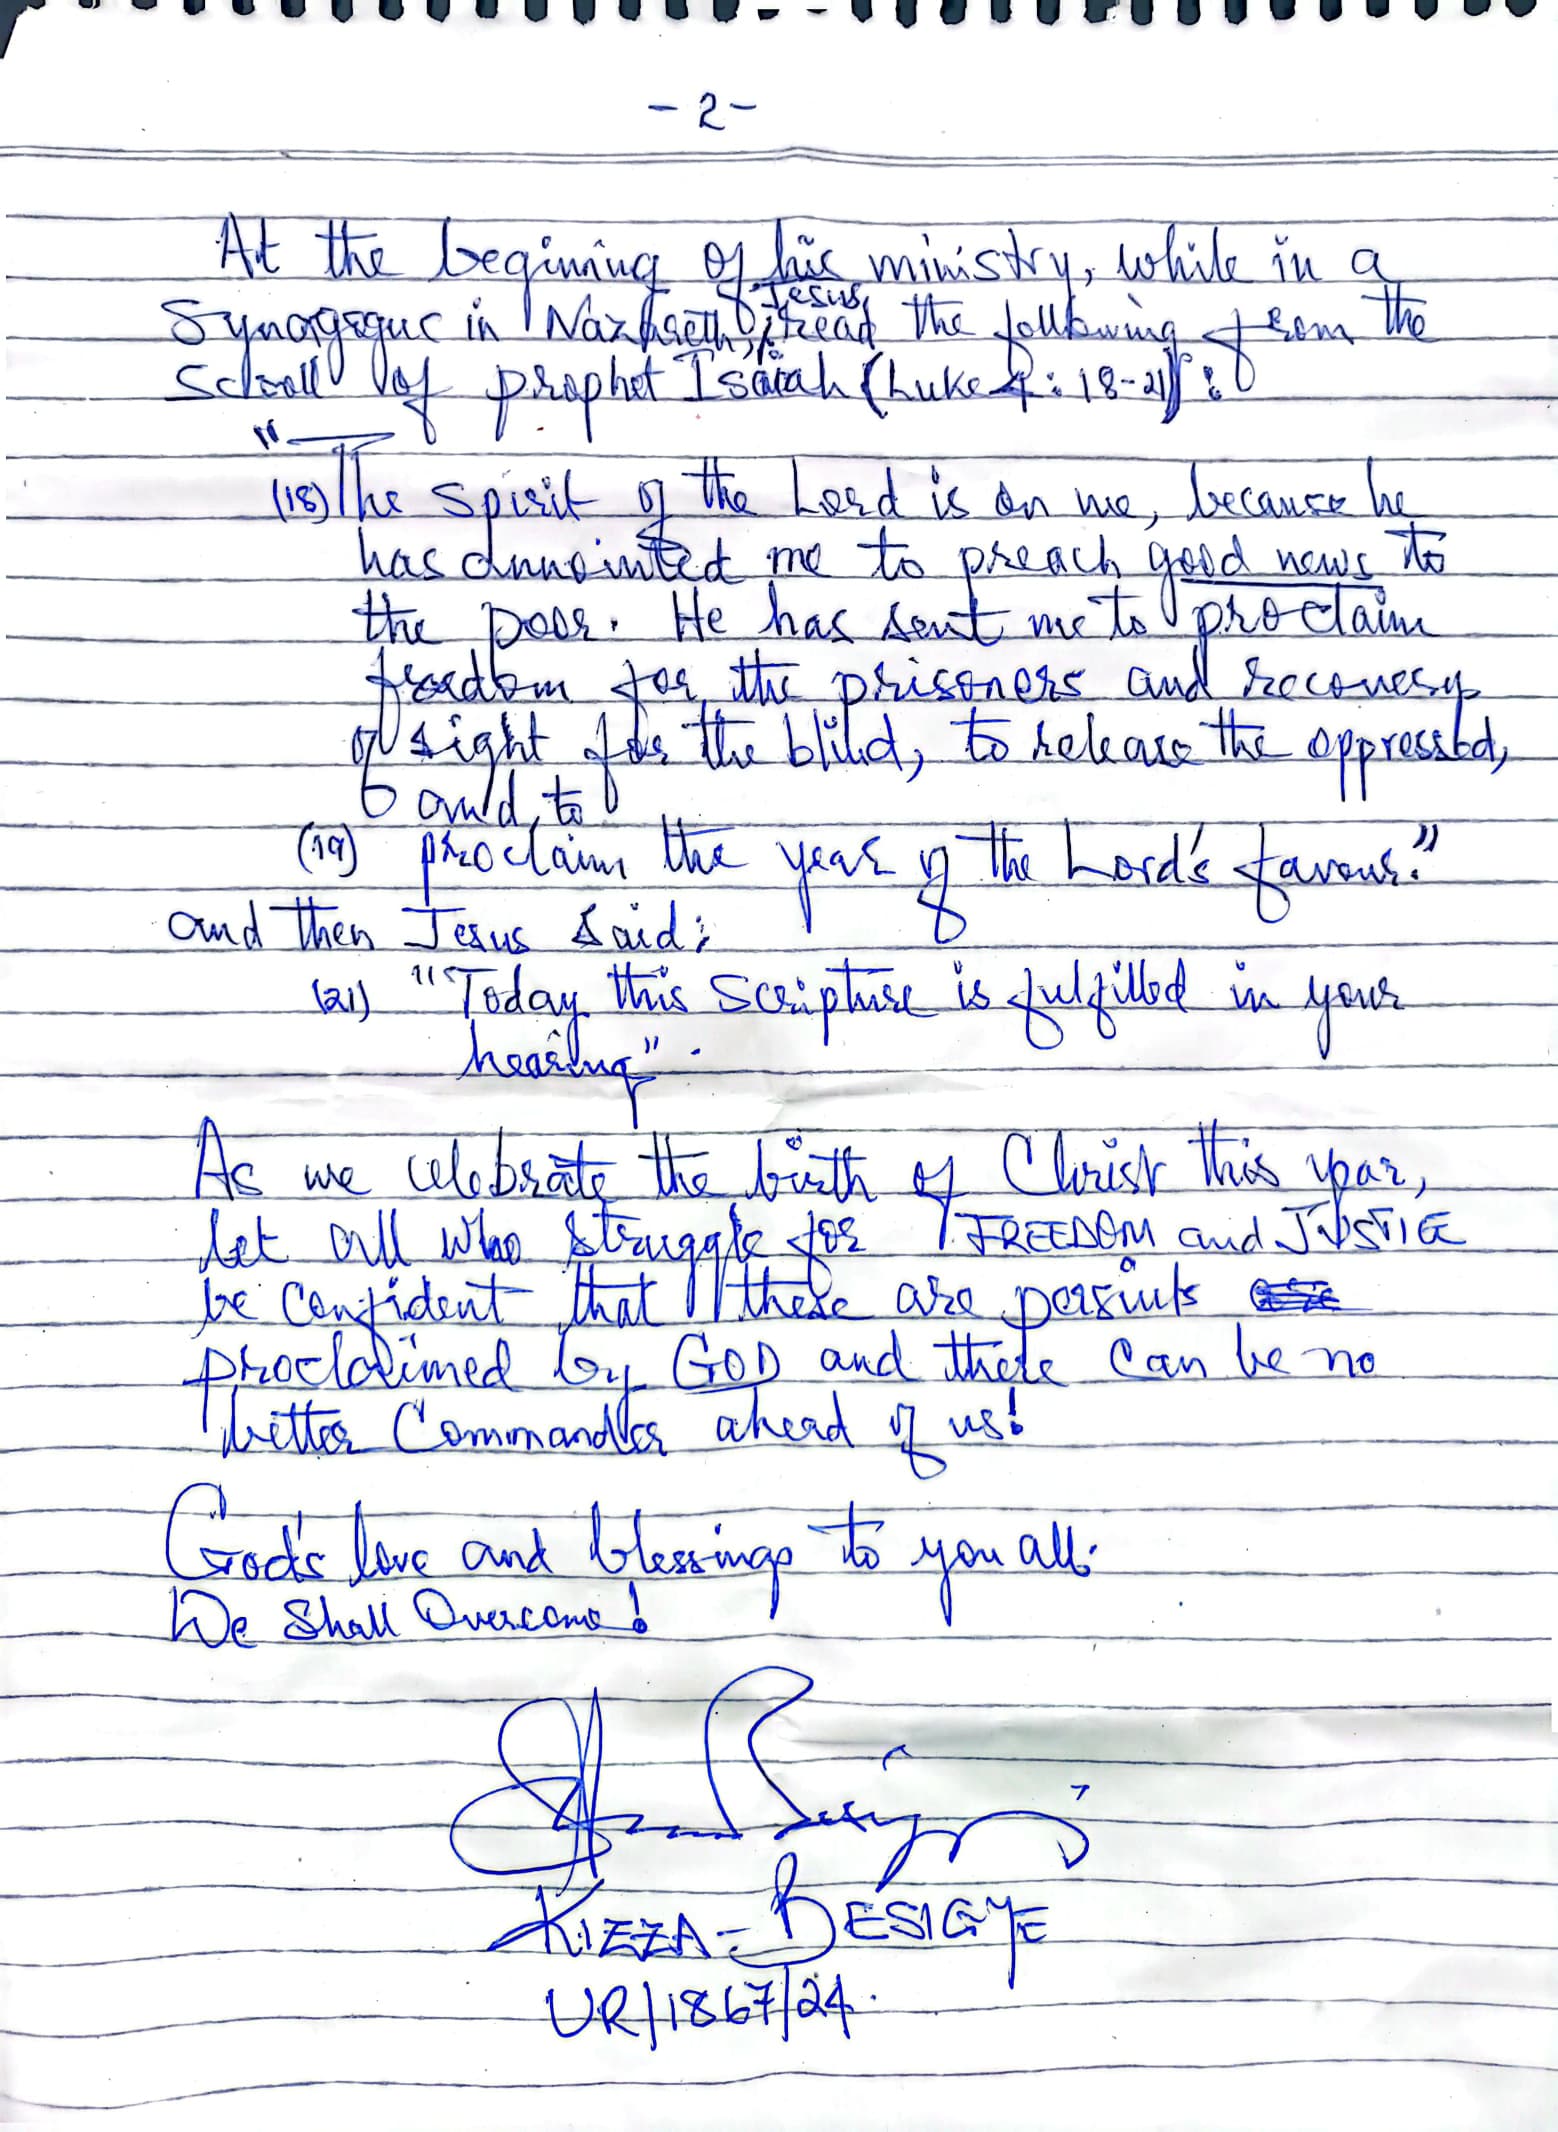 - 2 -
At the begining of his ministry, while in a
Synagogue in Nazareth, Jesus read the following from the
Scroll of prophet Isaiah (Luke 4: 18-21):
"
(18) The Spirit of the Lord is on me, because he
has annointed me to preach good news to
the poor. He has sent me to proclaim
freedom for the prisoners and recovery
of sight for the blind, to release the oppressed,
and to
(19) proclaim the year of the Lord's favour."
and then Jesus said:
(21) "Today this Scripture is fulfilled in your
hearing".
As we celebrate the birth of Christ this year,
let all who struggle for FREEDOM and JUSTICE
be confident that these are persuits
proclaimed by GOD and there can be no
better Commander ahead of us!
God's love and blessings to you all.
We Shall Overcome!
KIZZA-BESIGYE
UR/1867/24.